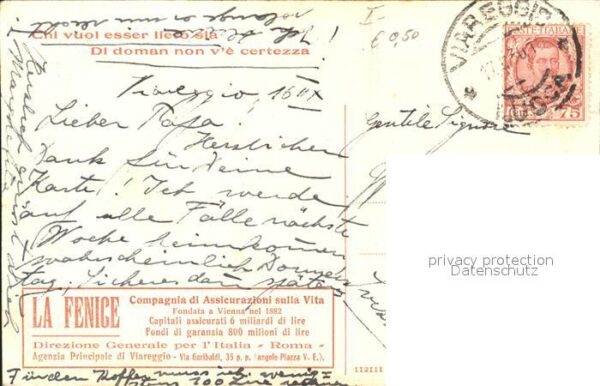 Chi vuol esser lieto sia
Di doman non v'è certezza
I-
€ 0,50
VIAREGGIO
LUCCA
POSTE ITALIANE
75
Viareggio, 16 IX
Lieber Papa!
Herzlichen
Dank für Deine
Karte! Ich werde
auf alle Fälle nächste
Woche heimkommen
wahrscheinlich Donners
tag, Sicheres dann später
Gentile Signore
privacy protection
Datenschutz
LA FENICE
Compagnia di Assicurazioni sulla Vita
Fondata a Vienna nel 1882
Capitali assicurati 6 miliardi di lire
Fondi di garanzia 800 milioni di lire
Direzione Generale per l'Italia - Roma
Agenzia Principale di Viareggio - Via Garibaldi, 35 p. p. (angolo Piazza V. E.).
112111
Für den Koffer muss ich wenig-
stens 100 Lire rechnen